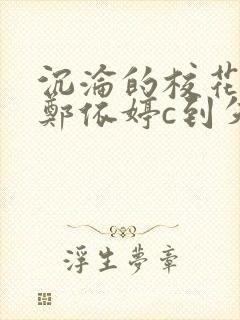 沉淪的校花
鄭依婷c到
浮生夢章